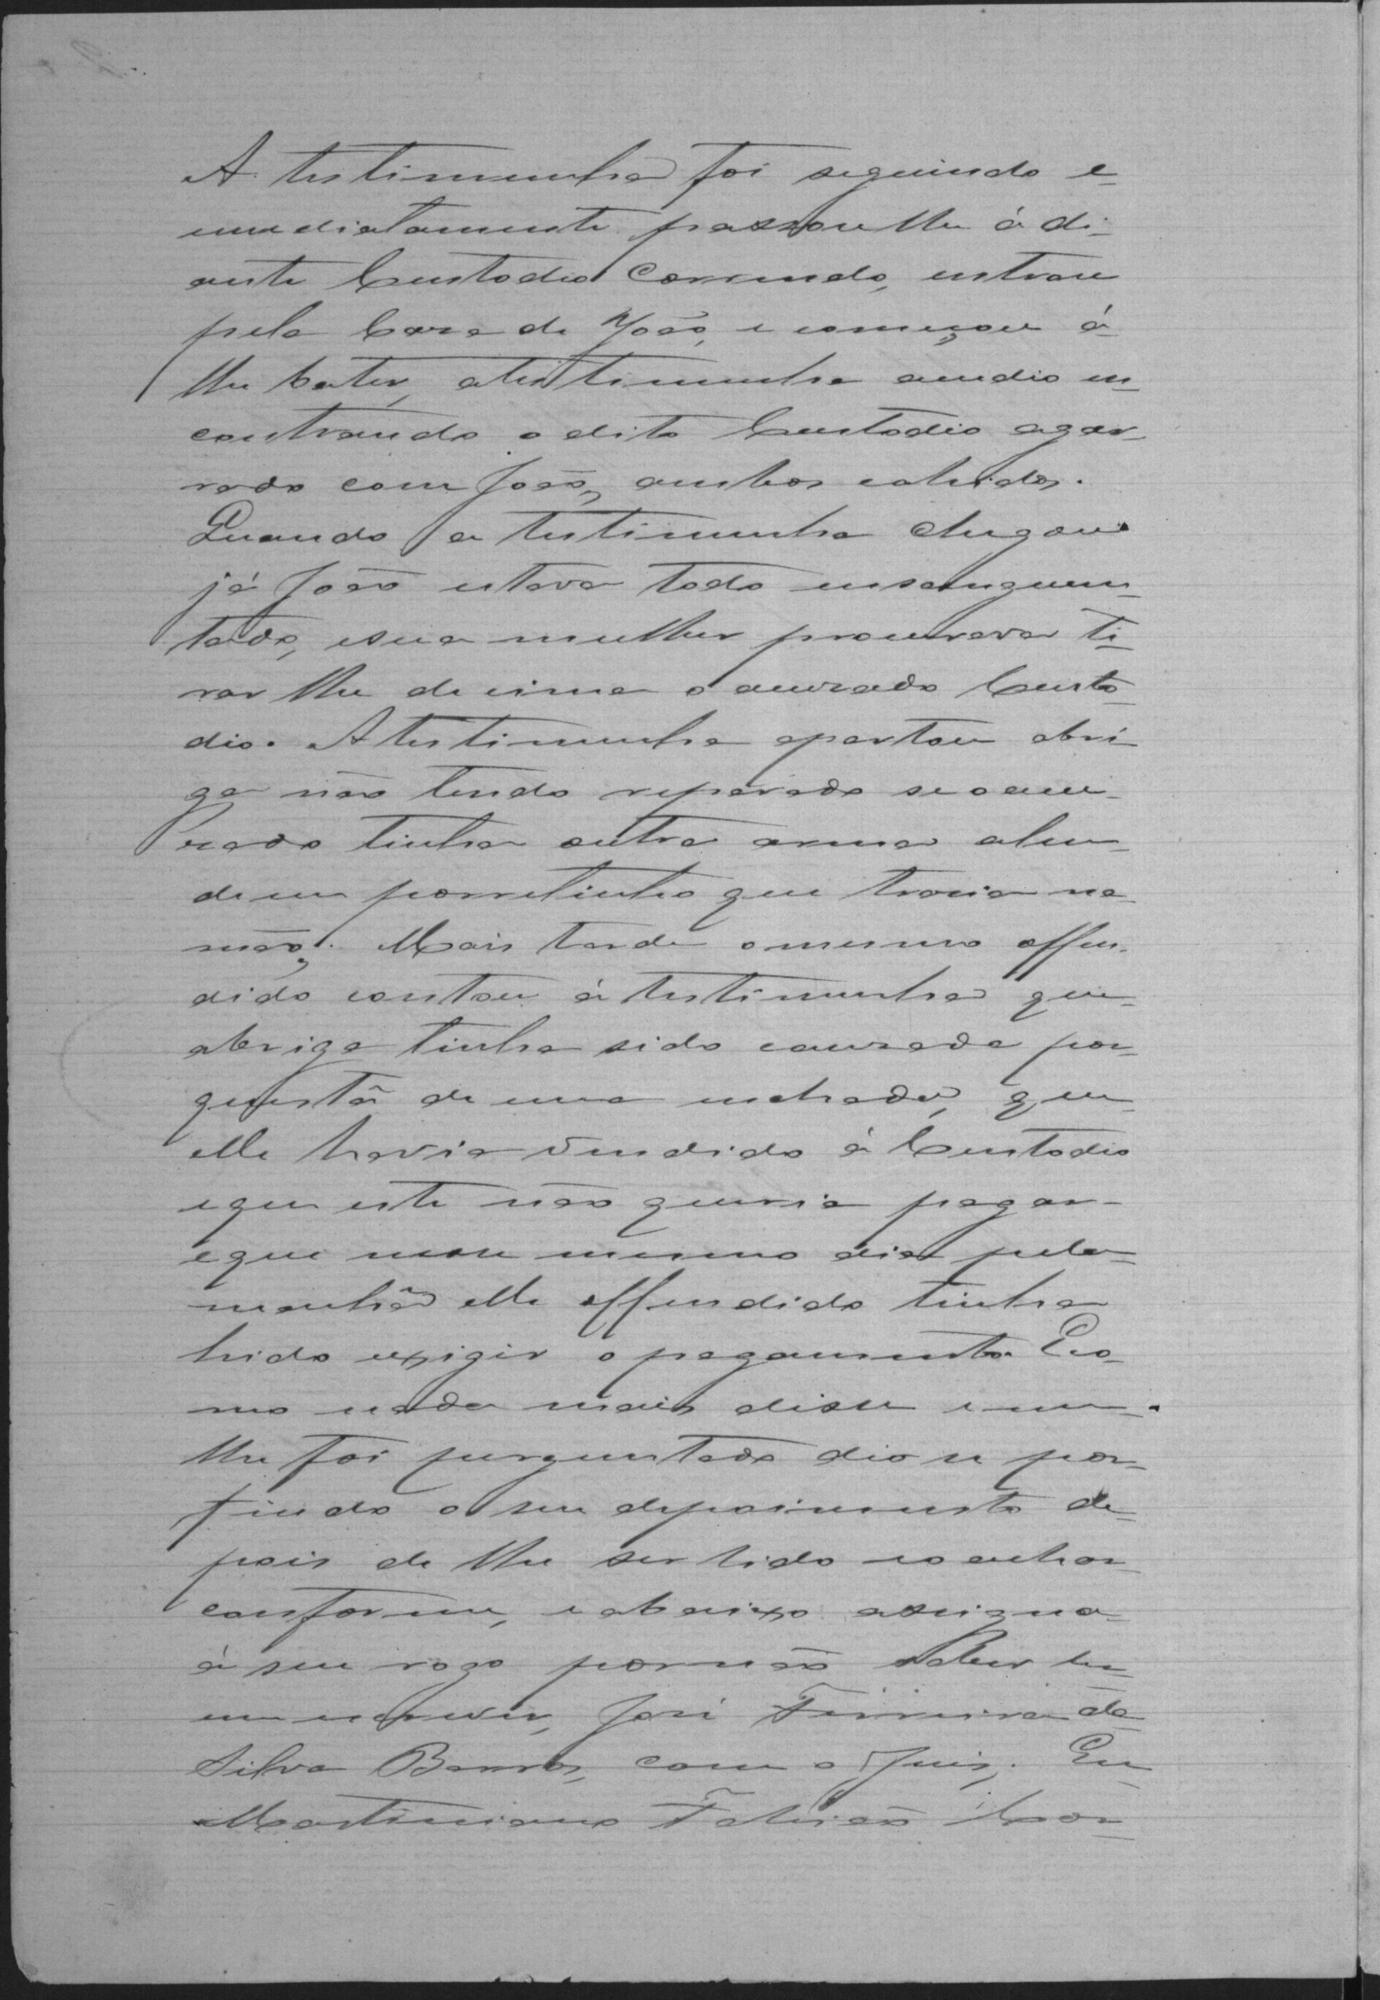 A testimunha foi seguindo e
immediatamente passou lhe á di-
ante Custodio correndo, entrou
pela Caza de João, e começou á
lhe bater, atestimunha acudio en-
contrando o dito Custodio agar-
rado com João, ambos cahidos.
Quando a testimunha chegou
já João estava todo ensanguen-
tado, esua mulher procurava ti-
rar lhe de cima o acuzado Custo-
dio. A testimunha apartou abri-
ga não tendo reparado seoacu-
zado tinha outra arma alem
de um porretinho que trazia na
mão. Mais tarde omesmo offen-
dido contou á testimunha que
abriga tinha sido cauzada por
questã de uma enchada, que
elle havia vendido á Custodio
eque este não queria pagar
eque nesse mesmo dia pela
manhã elle offendido tinha
hido exigir o pagamento. Co-
mo nada mais disse e nem
lhe foi perguntado deo se por
findo o seu depoimento de-
pois de lhe ser lido eo achar
conforme, e abaixo assigna
á seu rogo pornão saber ler
nem escrever, José Ferreira da
Silva Barros, com o Juiz. Eu
Martiniano